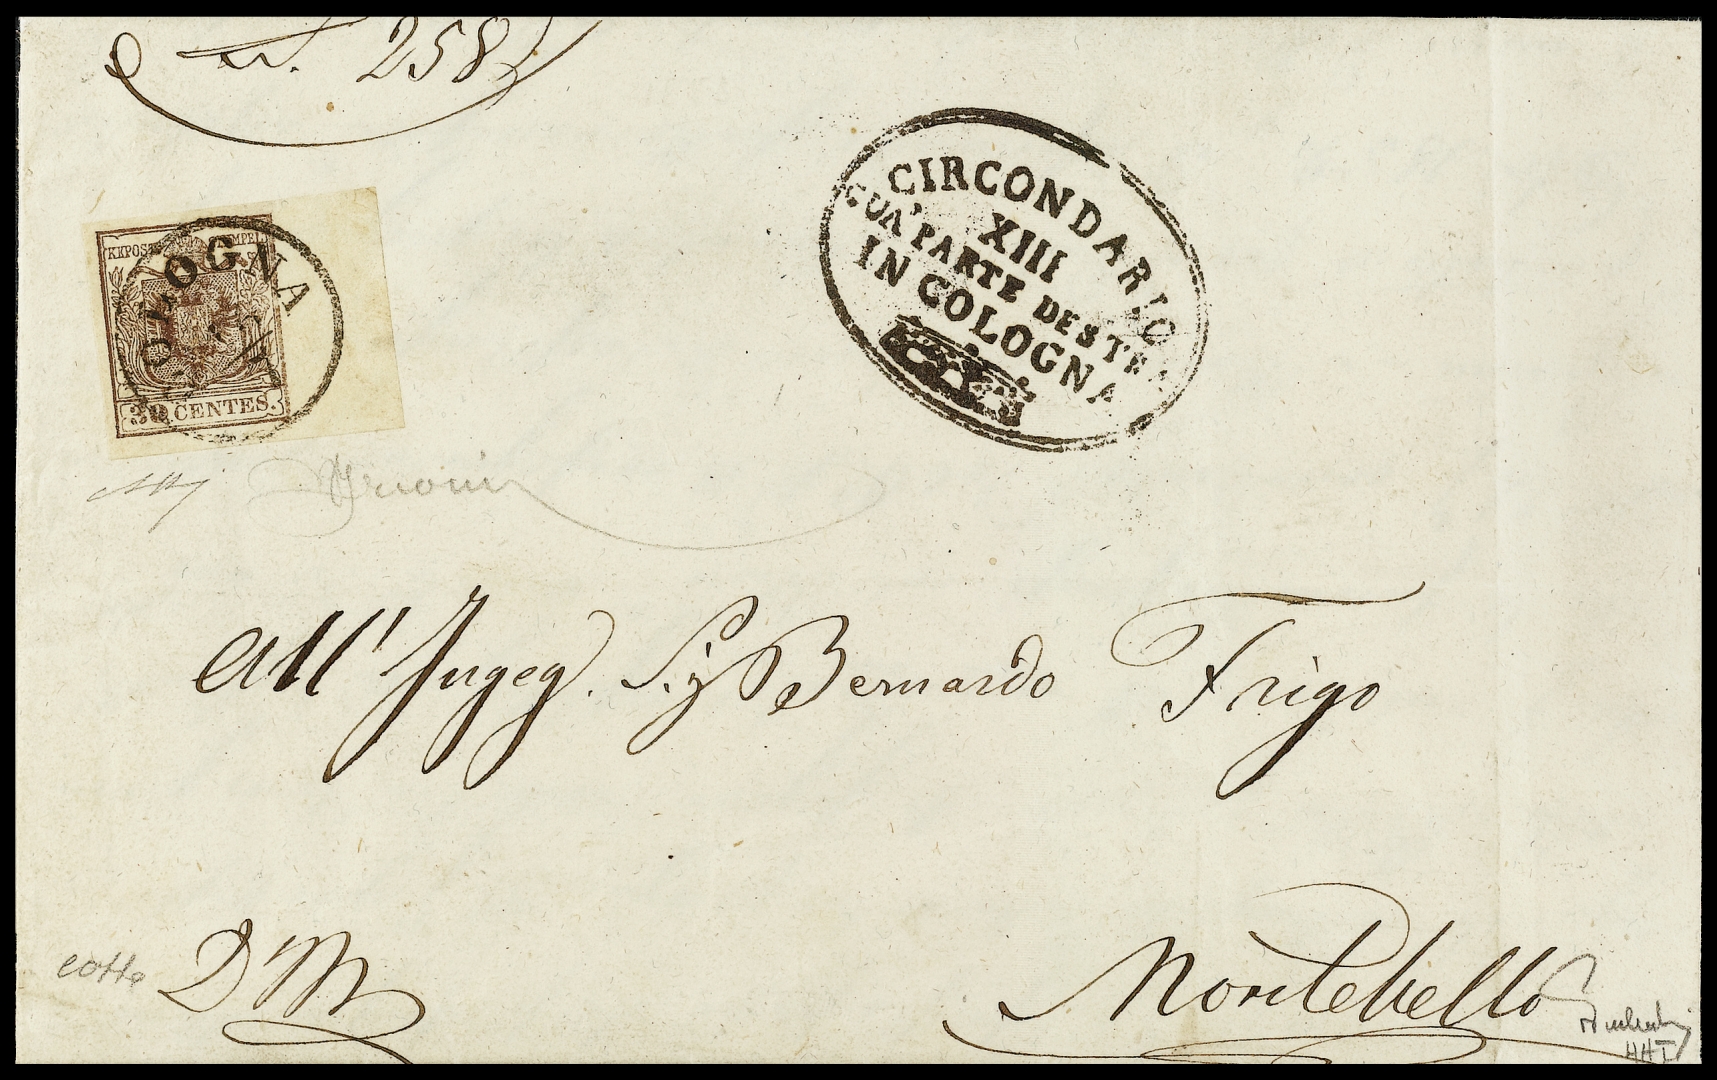 N. 258
KKPOST STEMPEL
COLOGNA
30 CENTES.
CIRCONDARIO
XIII
GUA' PARTE DESTRA
IN COLOGNA
All' Ingeg. Sig Bernardo Frigo
D'M
Montebello